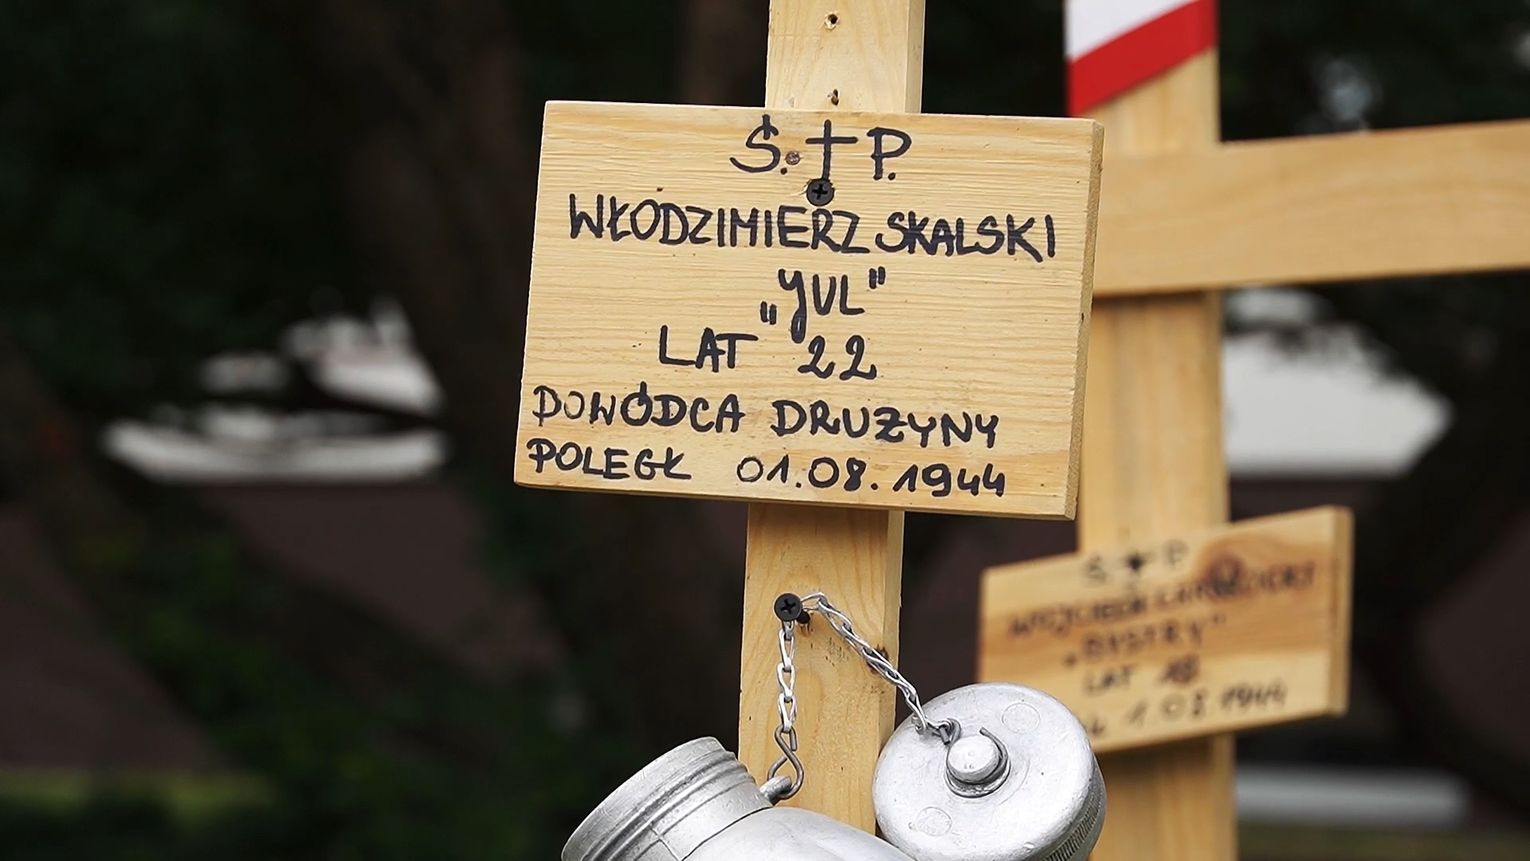 Ś.†P.
WŁODZIMIERZ SKALSKI
„YUL”
LAT 22
DOWÓDCA DRUŻYNY
POLEGŁ 01.08.1944
Ś†P
WOJCIECH
„BYSTRY”
LAT 18
1.08.1944